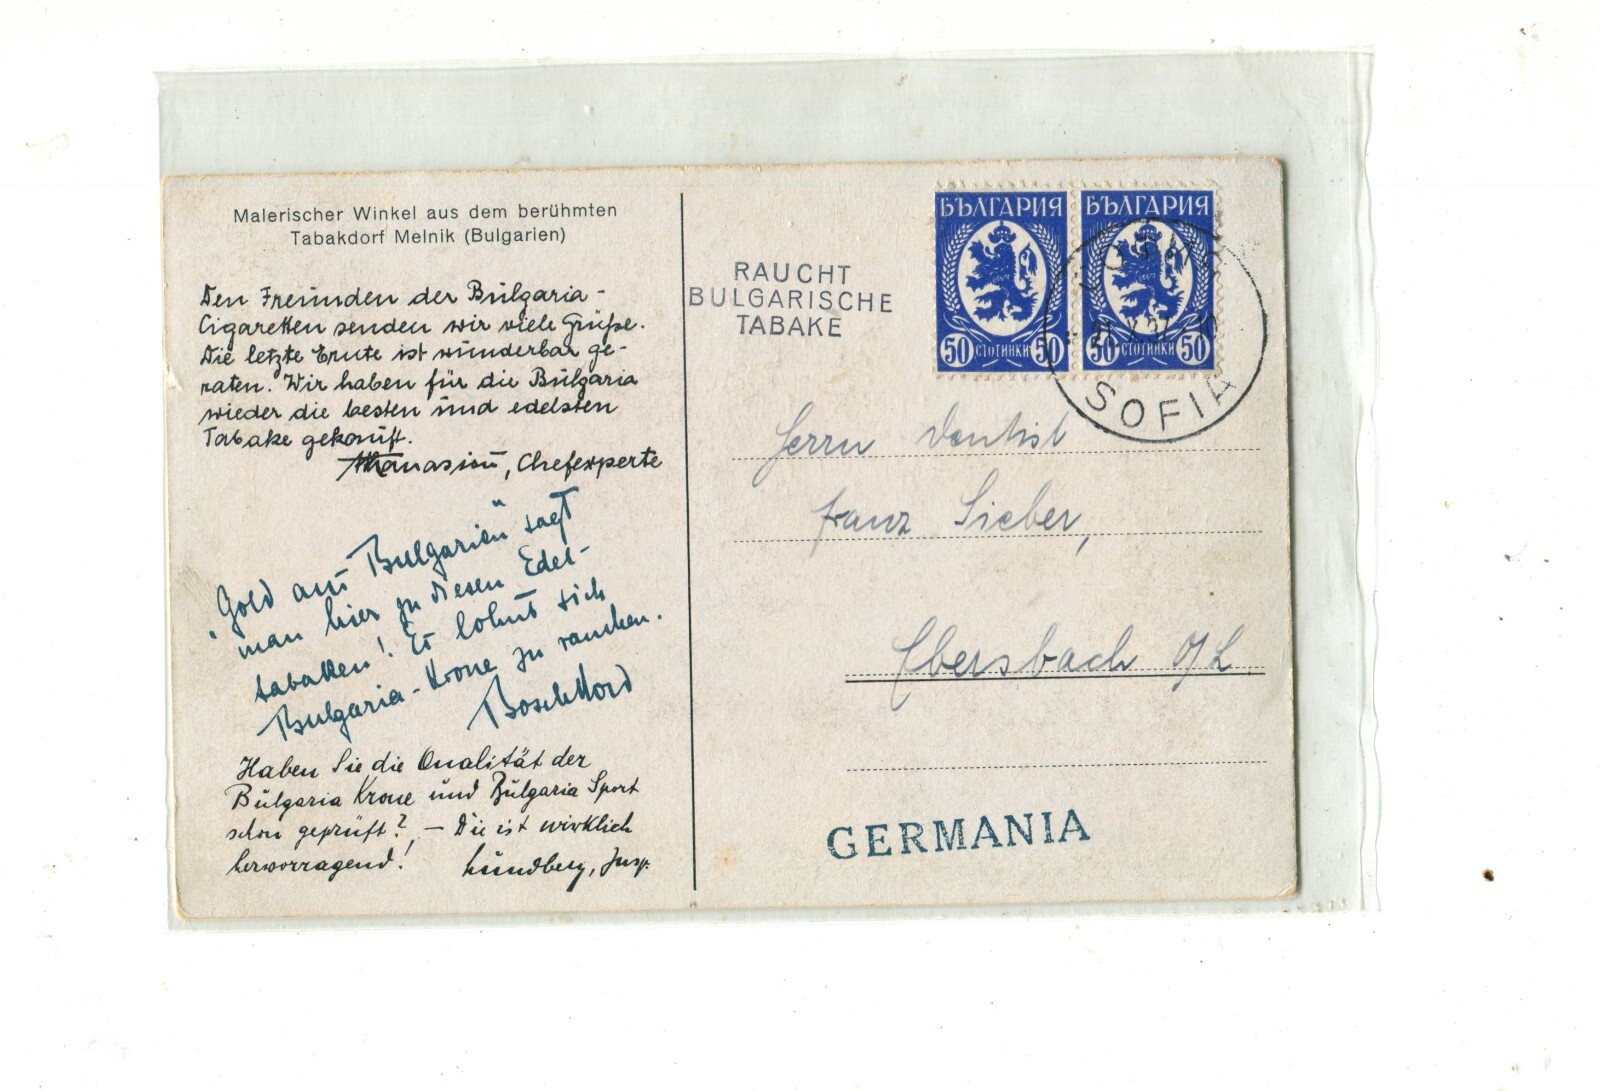 Malerischer Winkel aus dem berühmten
Tabakdorf Melnik (Bulgarien)
Den Freunden der Bulgaria-
Cigaretten senden wir viele Grüße.
Die letzte Ernte ist wunderbar ge-
raten. Wir haben für die Bulgaria
wieder die besten und edelsten
Tabake gekauft.
Athanasiou, Chefexperte
"Gold aus Bulgarien" sagt
man hier zu diesen Edel-
tabaken! Es lohnt sich
Bulgaria-Krone zu rauchen.
Haben Sie die Qualität der
Bulgaria Krone und Bulgaria Sport
schon geprüft? — Die ist wirklich
hervorragend! Lundberg, Insp.
RAUCHT
BULGARISCHE
TABAKE
БЪЛГАРИЯ БЪЛГАРИЯ
50 СТОТИНКИ 50 50 СТОТИНКИ 50
21.X.37.-10
SOFIA
Herrn Dentist
Franz Sieber,
Ebersbach O/L
GERMANIA